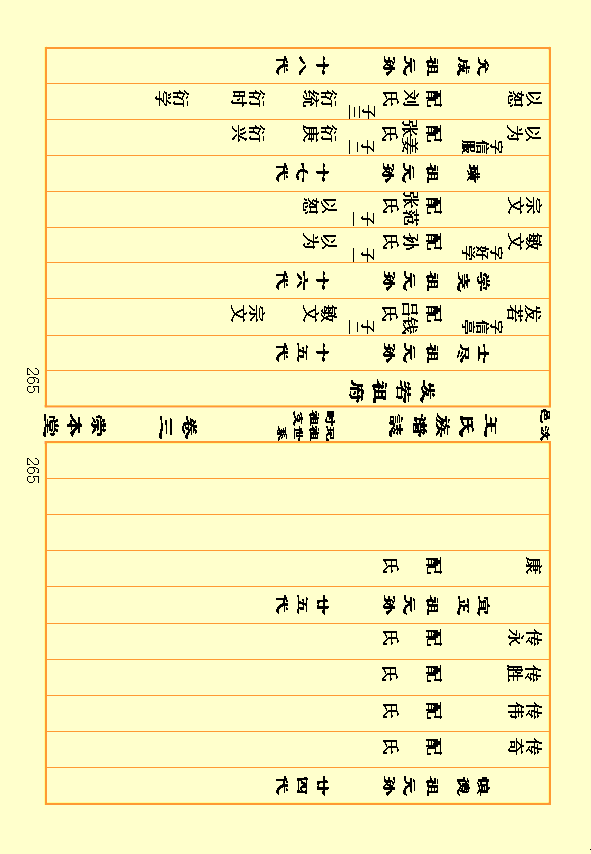 德祖元孙 廿四代
传奇 配 氏
传伟 配 氏
传胜 配 氏
传永 配 氏
宜正祖元孙 廿五代
康 配 氏
265
汶邑 王氏族谱誌 祖世系 时祖支 卷三 崇本堂
发若祖府
265
士尽祖元孙 十五代
发若 字信亭 配吕钱氏 子二 敏文 宗文
学尧祖元孙 十六代
敏文 字好学 配孙氏 子一 以为
宗文 配张范氏 子一 以恕
璜祖元孙 十七代
以为 字信服 配张姜氏 子二 衍庚 衍兴
以恕 配刘氏 子三 衍统 衍时 衍学
允成祖元孙 十八代